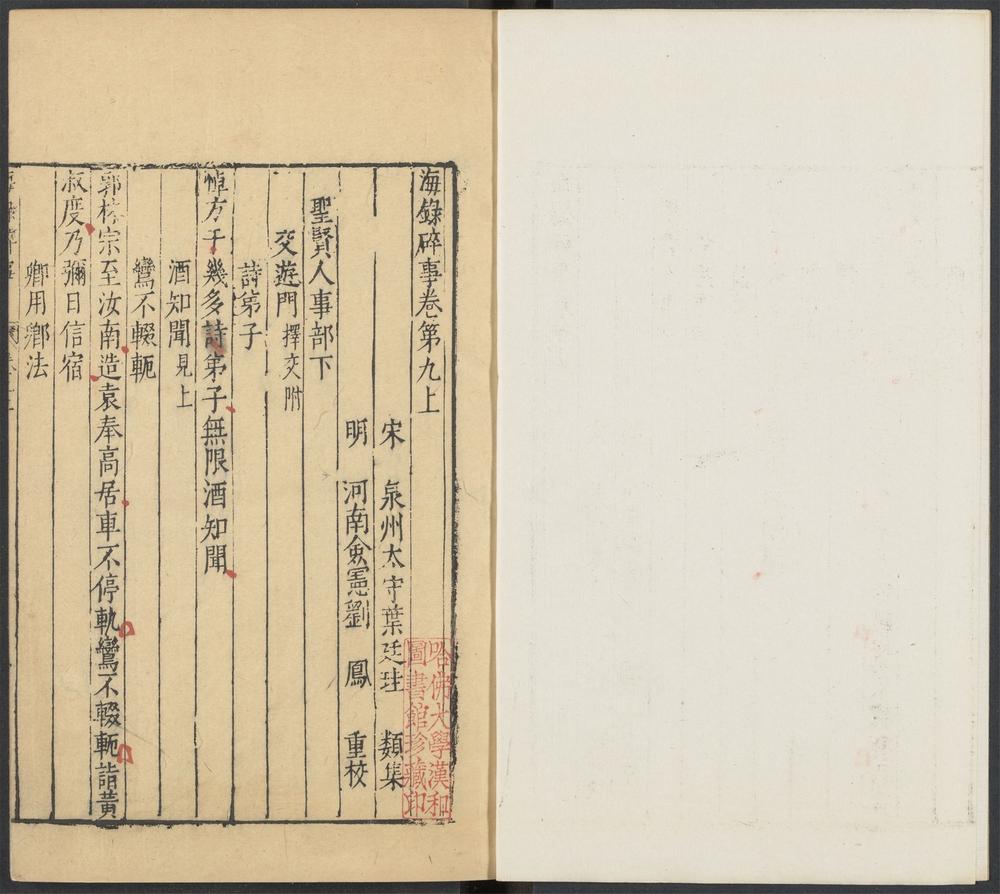 海錄碎事卷第九上
宋 泉州太守葉廷珪 類集
明 河南僉憲劉 鳳 重校
聖賢人事部下
交遊門 擇交附
詩弟子
悼方干幾多詩弟子無限酒知聞
酒知聞 見上
鸞不輟軛
郭林宗至汝南造袁奉高居車不停軌鸞不輟軛詣黃
叔度乃彌日信宿
鄉用鄉法
哈佛大學漢和
圖書館珍藏印